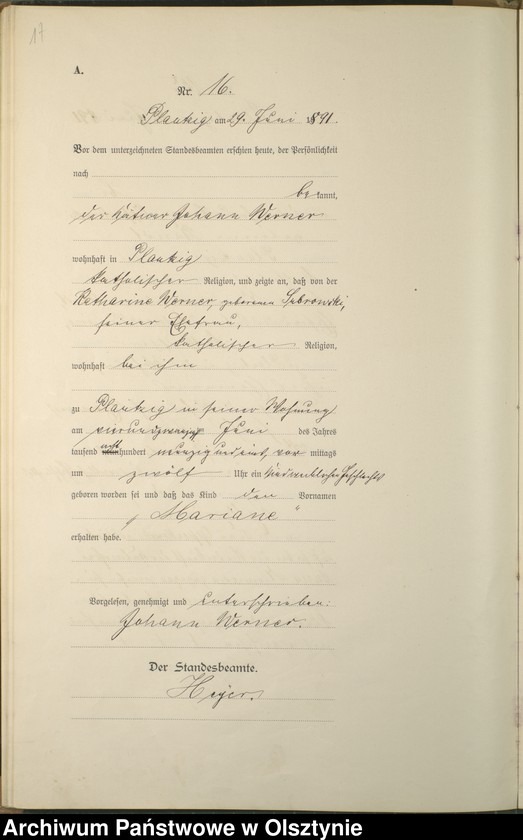 17
A.
Nr. 16.
Plautzig am 29. Juni 1891.
Vor dem unterzeichneten Standesbeamten erschien heute, der Persönlichkeit
nach
bekannt,
der Kätner Johann Werner
wohnhaft in Plautzig
katholischer Religion, und zeigte an, daß von der
Katharine Werner, geborenen Sabrowski,
seiner Ehefrau,
katholischer Religion,
wohnhaft bei ihm
zu Plautzig in seiner Wohnung
am vierundzwanzig Juni des Jahres
tausend acht hundert neunzig und eins, vor mittags
um zwölf Uhr ein Kind weiblichen Geschlechts
geboren worden sei und daß das Kind den Vornamen
„Mariane“
erhalten habe.
Vorgelesen, genehmigt und unterschrieben:
Johann Werner.
Der Standesbeamte.
Heyer.
Archiwum Państwowe w Olsztynie